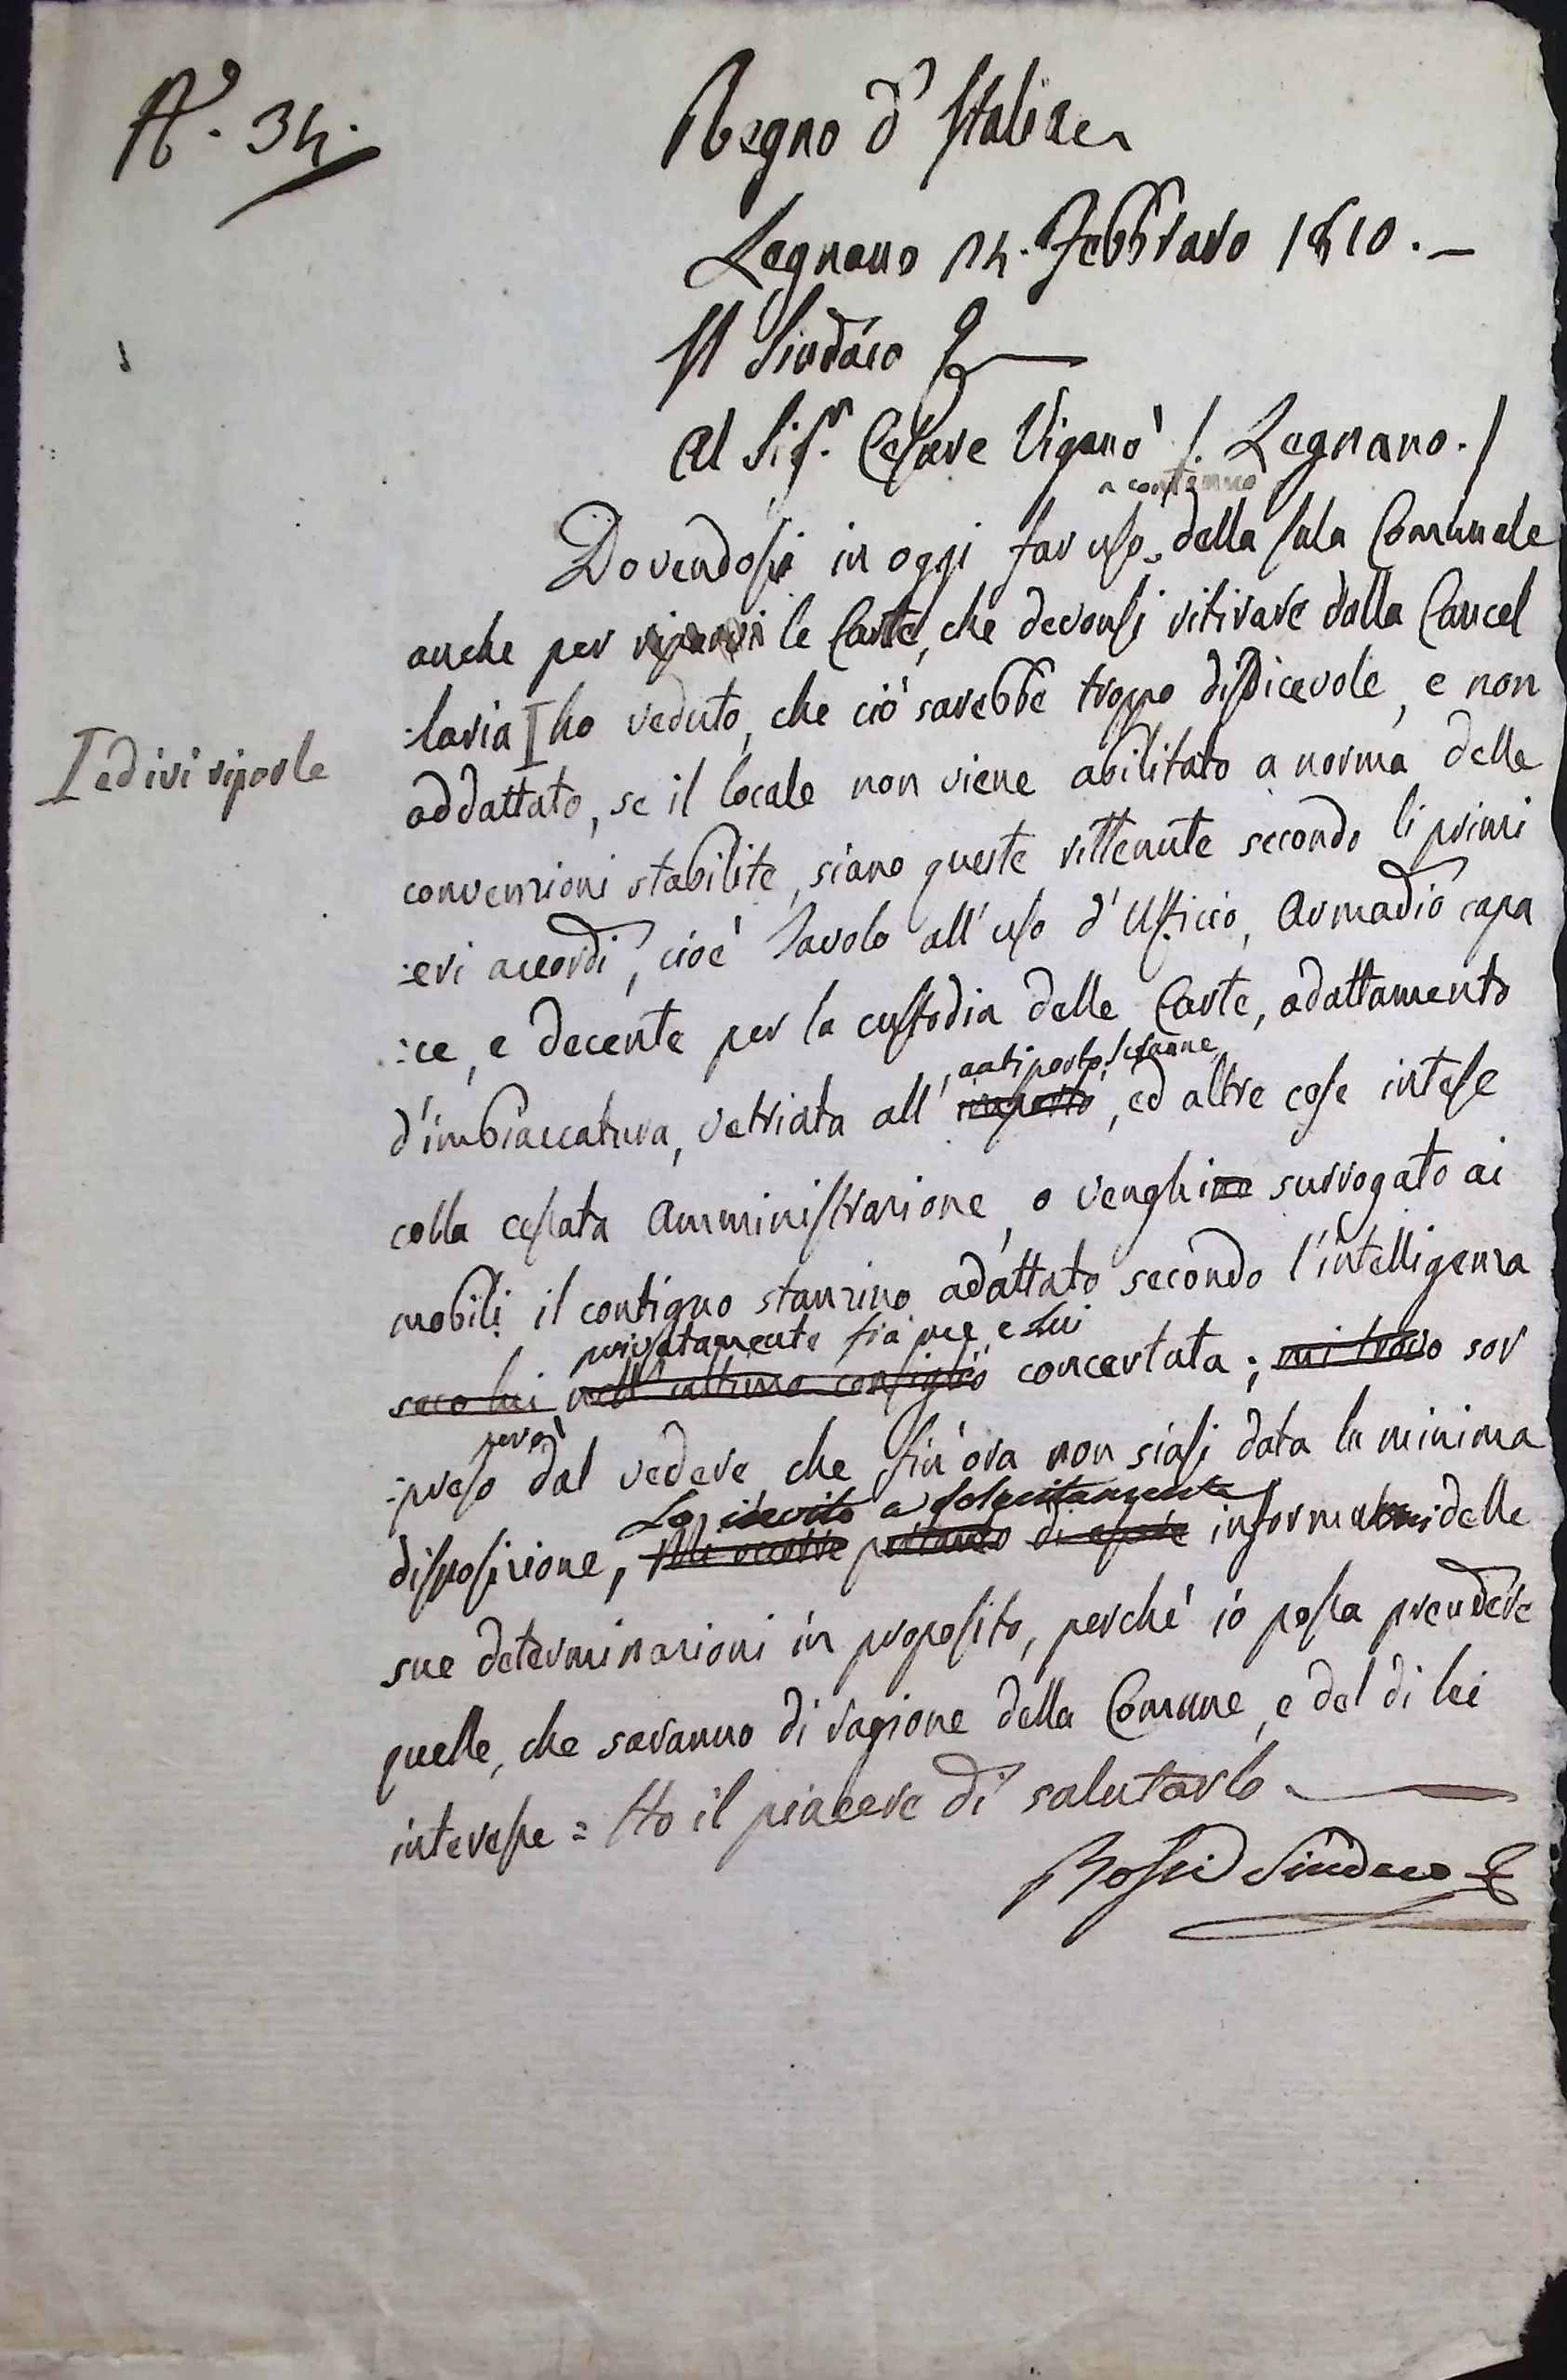 N.° 34.
Regno d'Italia
Legnano 14. Febbraro 1810. –
Il Sindaco
Al Sig.r Cesare Viganò /. Legnano. /
a contenuo
Dovendosi in oggi far uso della sala Comunale
anche per le Carte, che devonsi ritirare dalla Cancel
:laria I ho veduto, che ciò sarebbe troppo disdicevole, e non
I ed ivi riporle
addattato, se il locale non viene abilitato a norma delle
convenzioni stabilite, siano queste rittenute secondo li primi
:eri accordi, cioè Tavolo all'uso d'Ufficio, Armadio capa
:ce, e decente per la custodia delle Carte, adattamento
, antiporto, scranne
d'imbiaccatura, vetriata all' , ed altre cose intese
colla cessata Amministrazione, o venghino surrogato ai
mobili il contiguo stanzino adattato secondo l'intelligenza
privatamente frà me, e Lui
seco lui nell'ultimo consiglio concertata; mi trovo sor
però
:preso dal vedere che sin'ora non siasi data la minima
La invito a sollecitamente
disposizione, Mi occorre pertanto di essere informarmi delle
sue determinazioni in proposito, perchè io possa prendere
quelle, che saranno di ragione della Comune, e del di lei
interesse = Ho il piacere di salutarlo
Rossi Sindaco